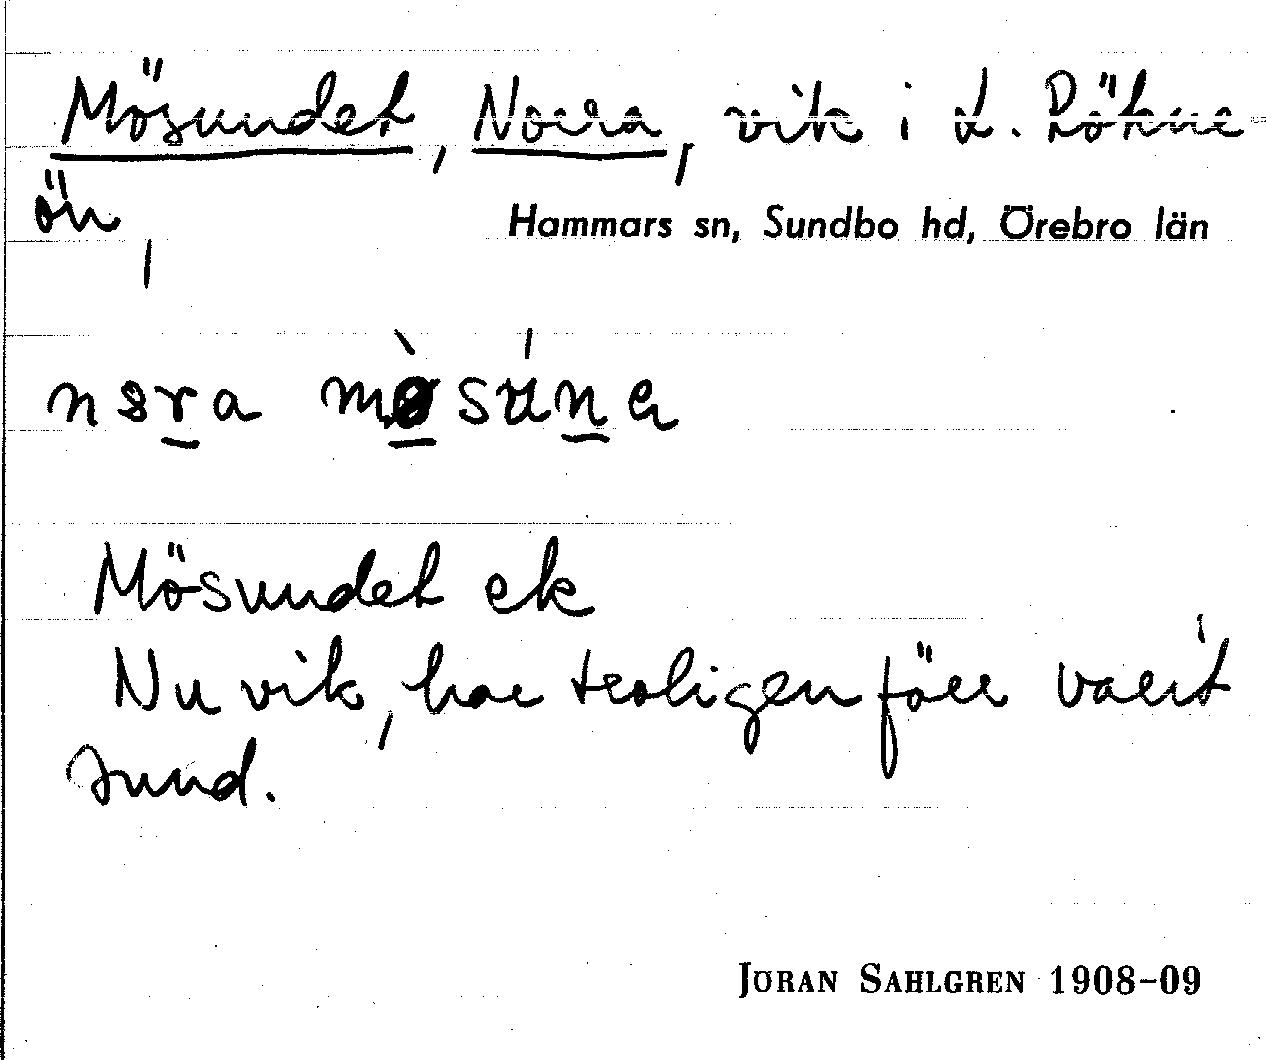 Mösundet, Norra, vik i L. Röhne-
ön,
Hammars sn, Sundbo hd, Örebro län
Mösundet ek
Nu vik, har troligen förr varit
sund.
JÖRAN SAHLGREN 1908-09